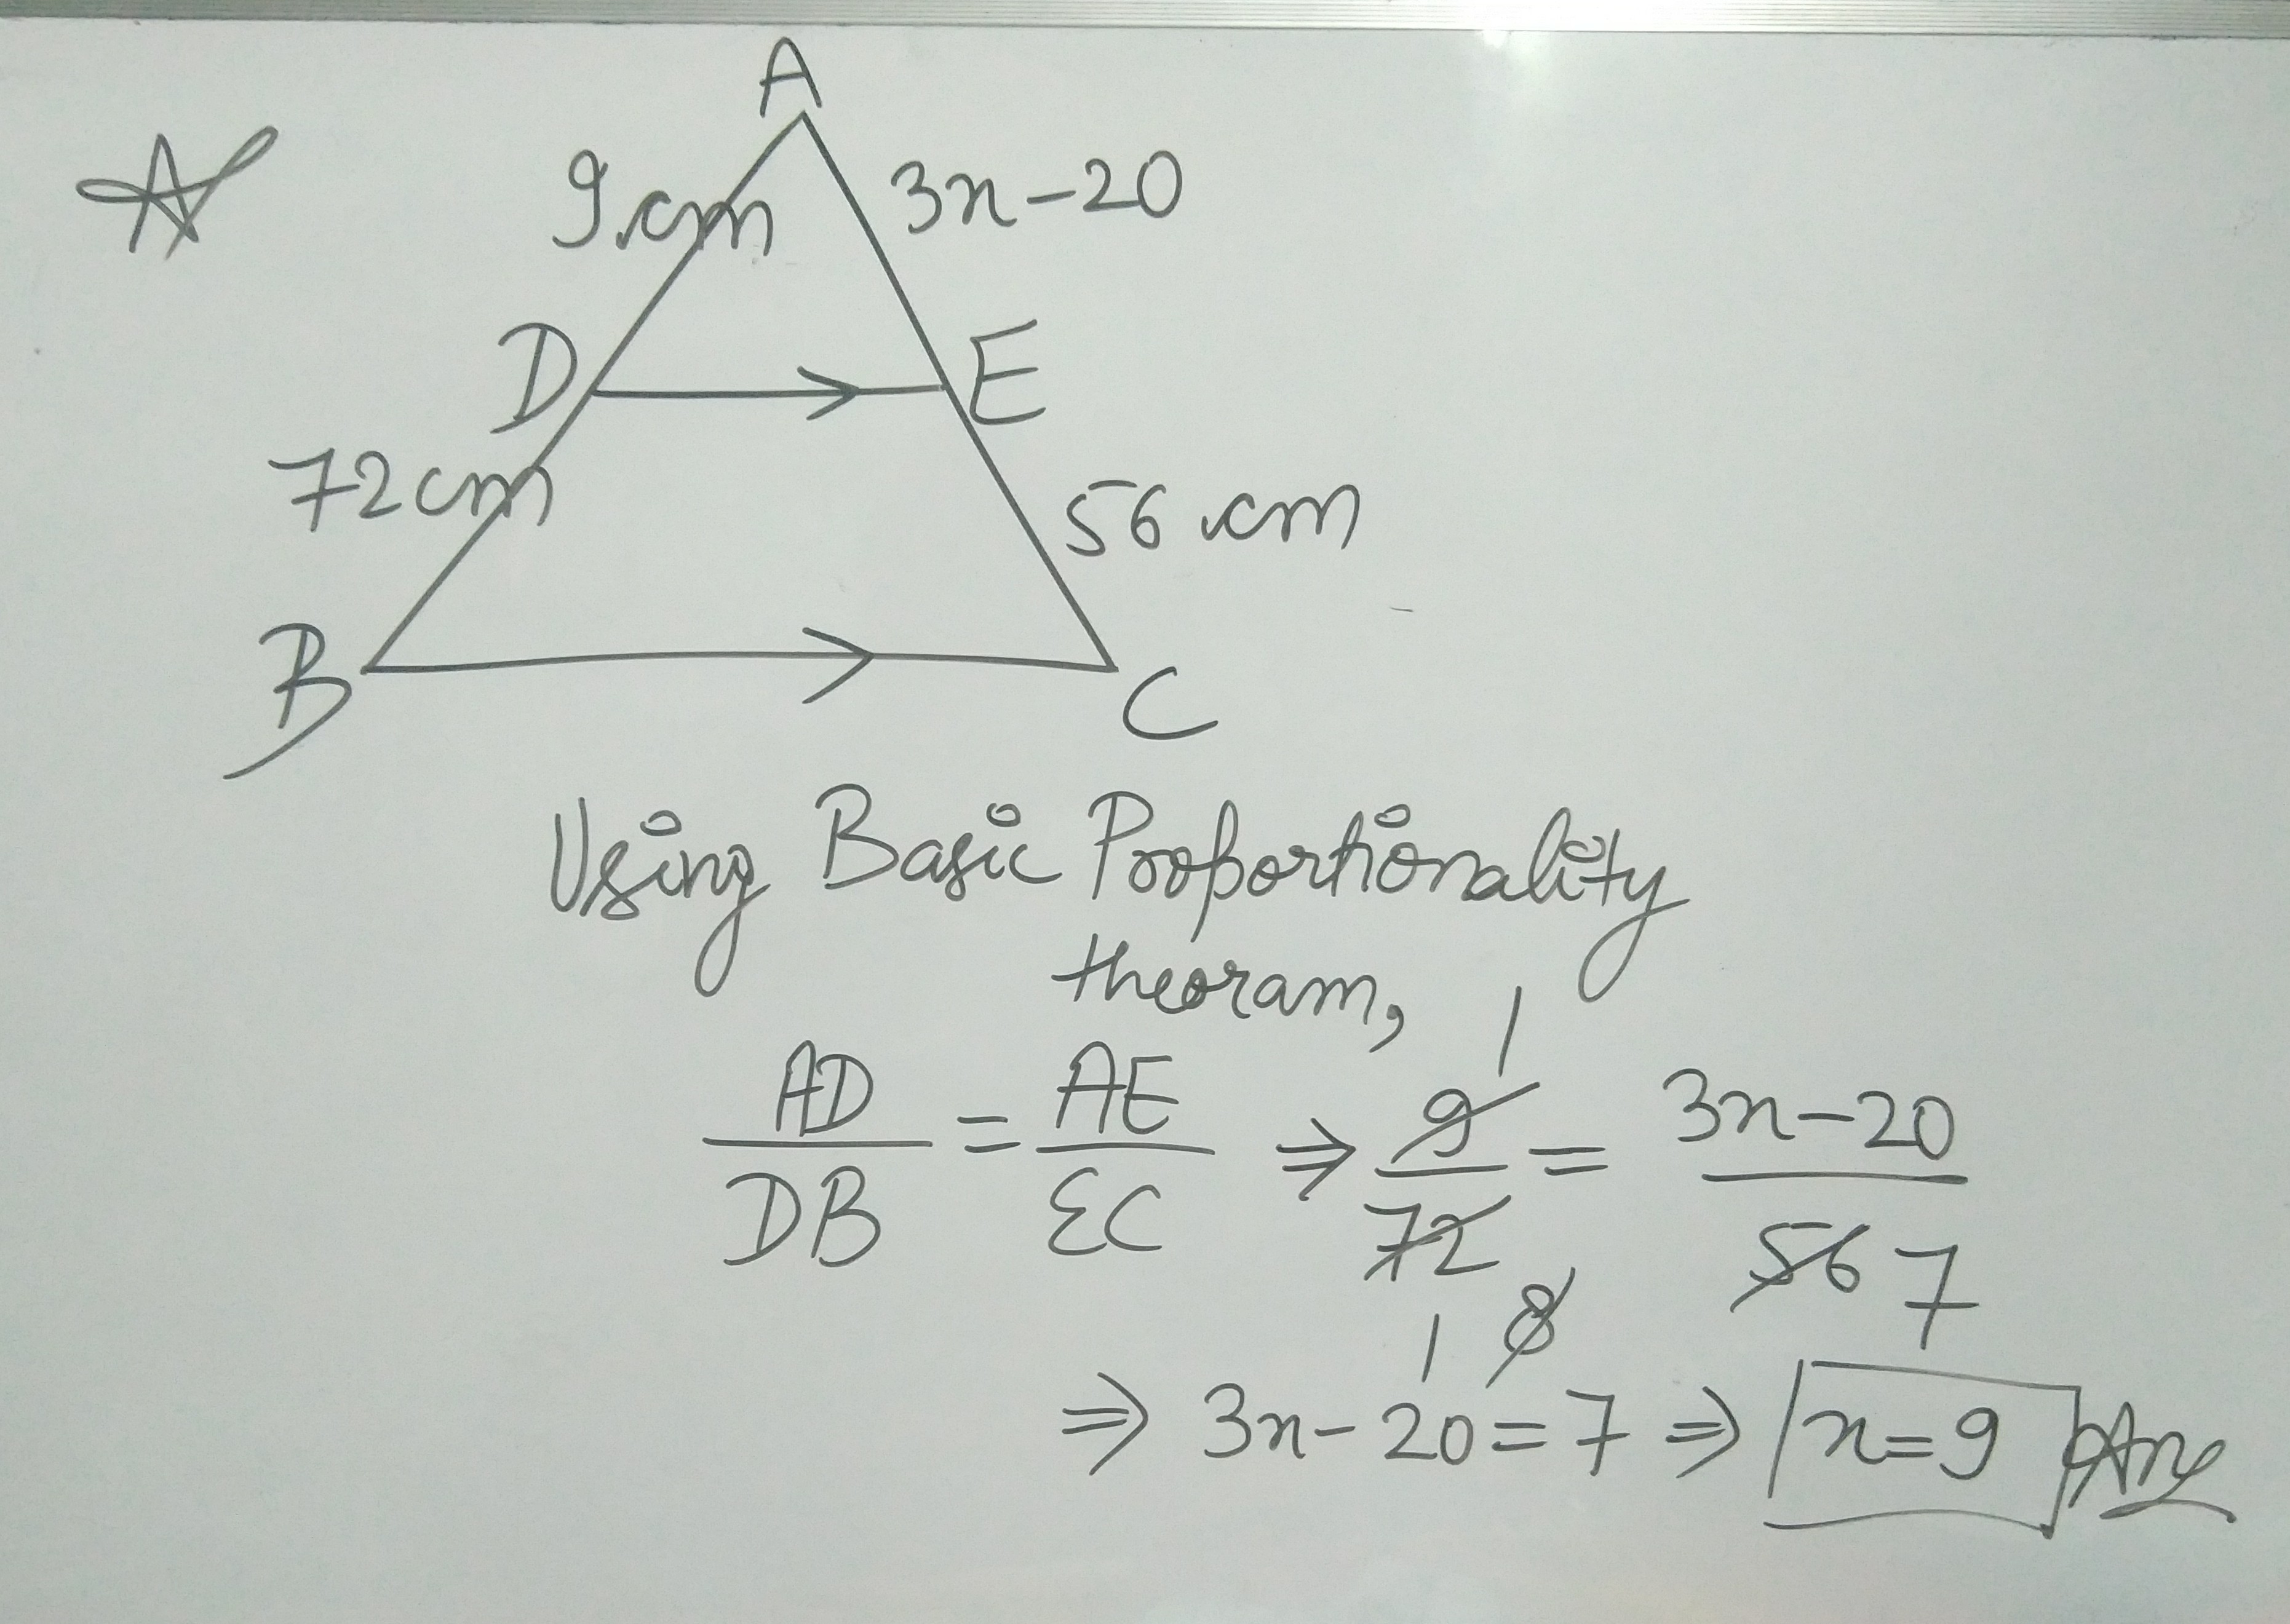 A
9 cm
3x-20
D
E
72 cm
56 cm
B
C
Using Basic Proportionality
theoram,
AD/DB = AE/EC ⇒ 9/72 = 3x-20/56
1
8
7
1
⇒ 3x-20=7 ⇒ x=9 Ans